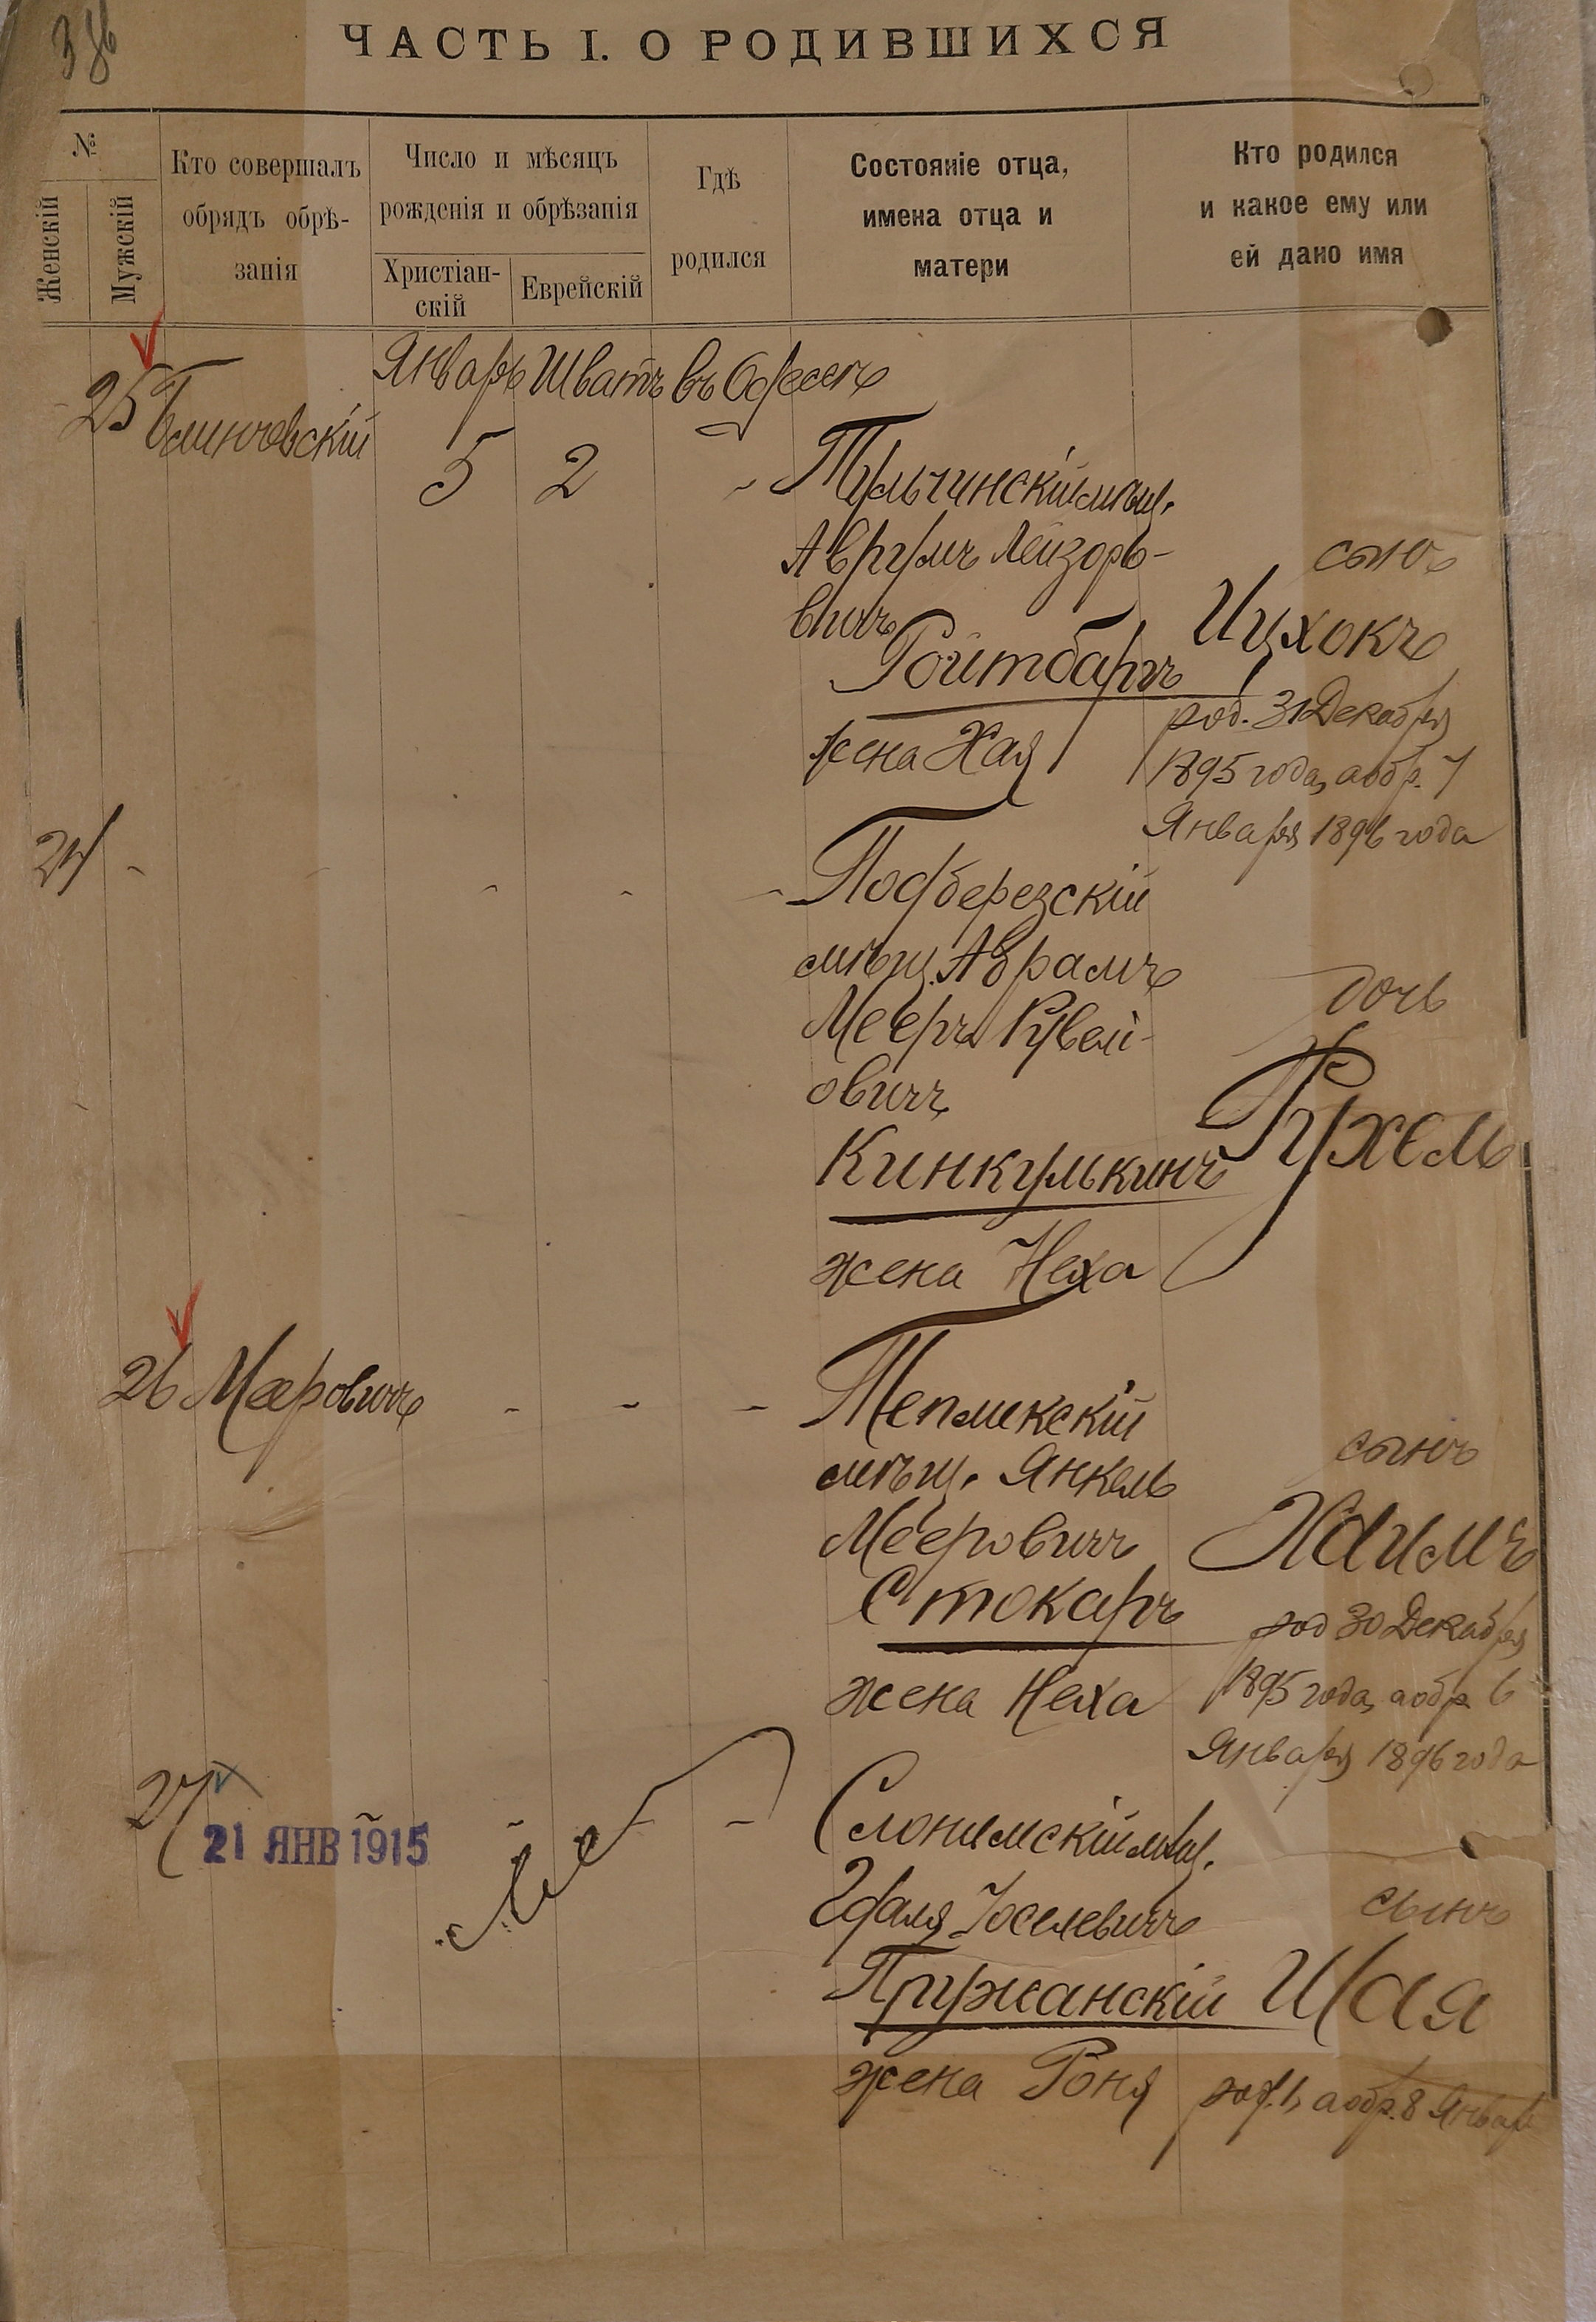 ЧАСТЬ I. О РОДИВШИХСЯ
№
Женскій
Мужскій
Кто совершалъ
обрядъ обрѣ-
занія
Число и мѣсяцъ
рожденія и обрѣзанія
Христіан-
скій
Еврейскій
Гдѣ
родился
Состояніе отца,
имена отца и
матери
Кто родился
и какое ему или
ей дано имя
Январь Шватъ въ Одессѣ
25
5 2
Тульчинскій мѣщ.
Аврумъ Лейзоро-
вичъ
Ройтбаргъ
жена Хая
сынъ
Ицхокъ
род. 31 Декабря
1895 года, а обр. 7
Января 1896 года
24
Подберезскій
мѣщ. Абрамъ
Мееръ Рувел-
овичъ
Кинкулькинъ
жена Неха
дочь
Рухель
26 Меровичъ
Тепликскій
мѣщ. Янкель
Мееровичъ
Стокаръ
жена Неха
сынъ
Хаимъ
род 30 Декабря
1895 года, а обр. 6
Января 1896 года
27
21 ЯНВ 1915
Слонимскій мѣщ.
Гдаля Іоселевичъ
Пружанскій
жена Роня
сынъ
Шая
род. 1, а обр. 8 Января